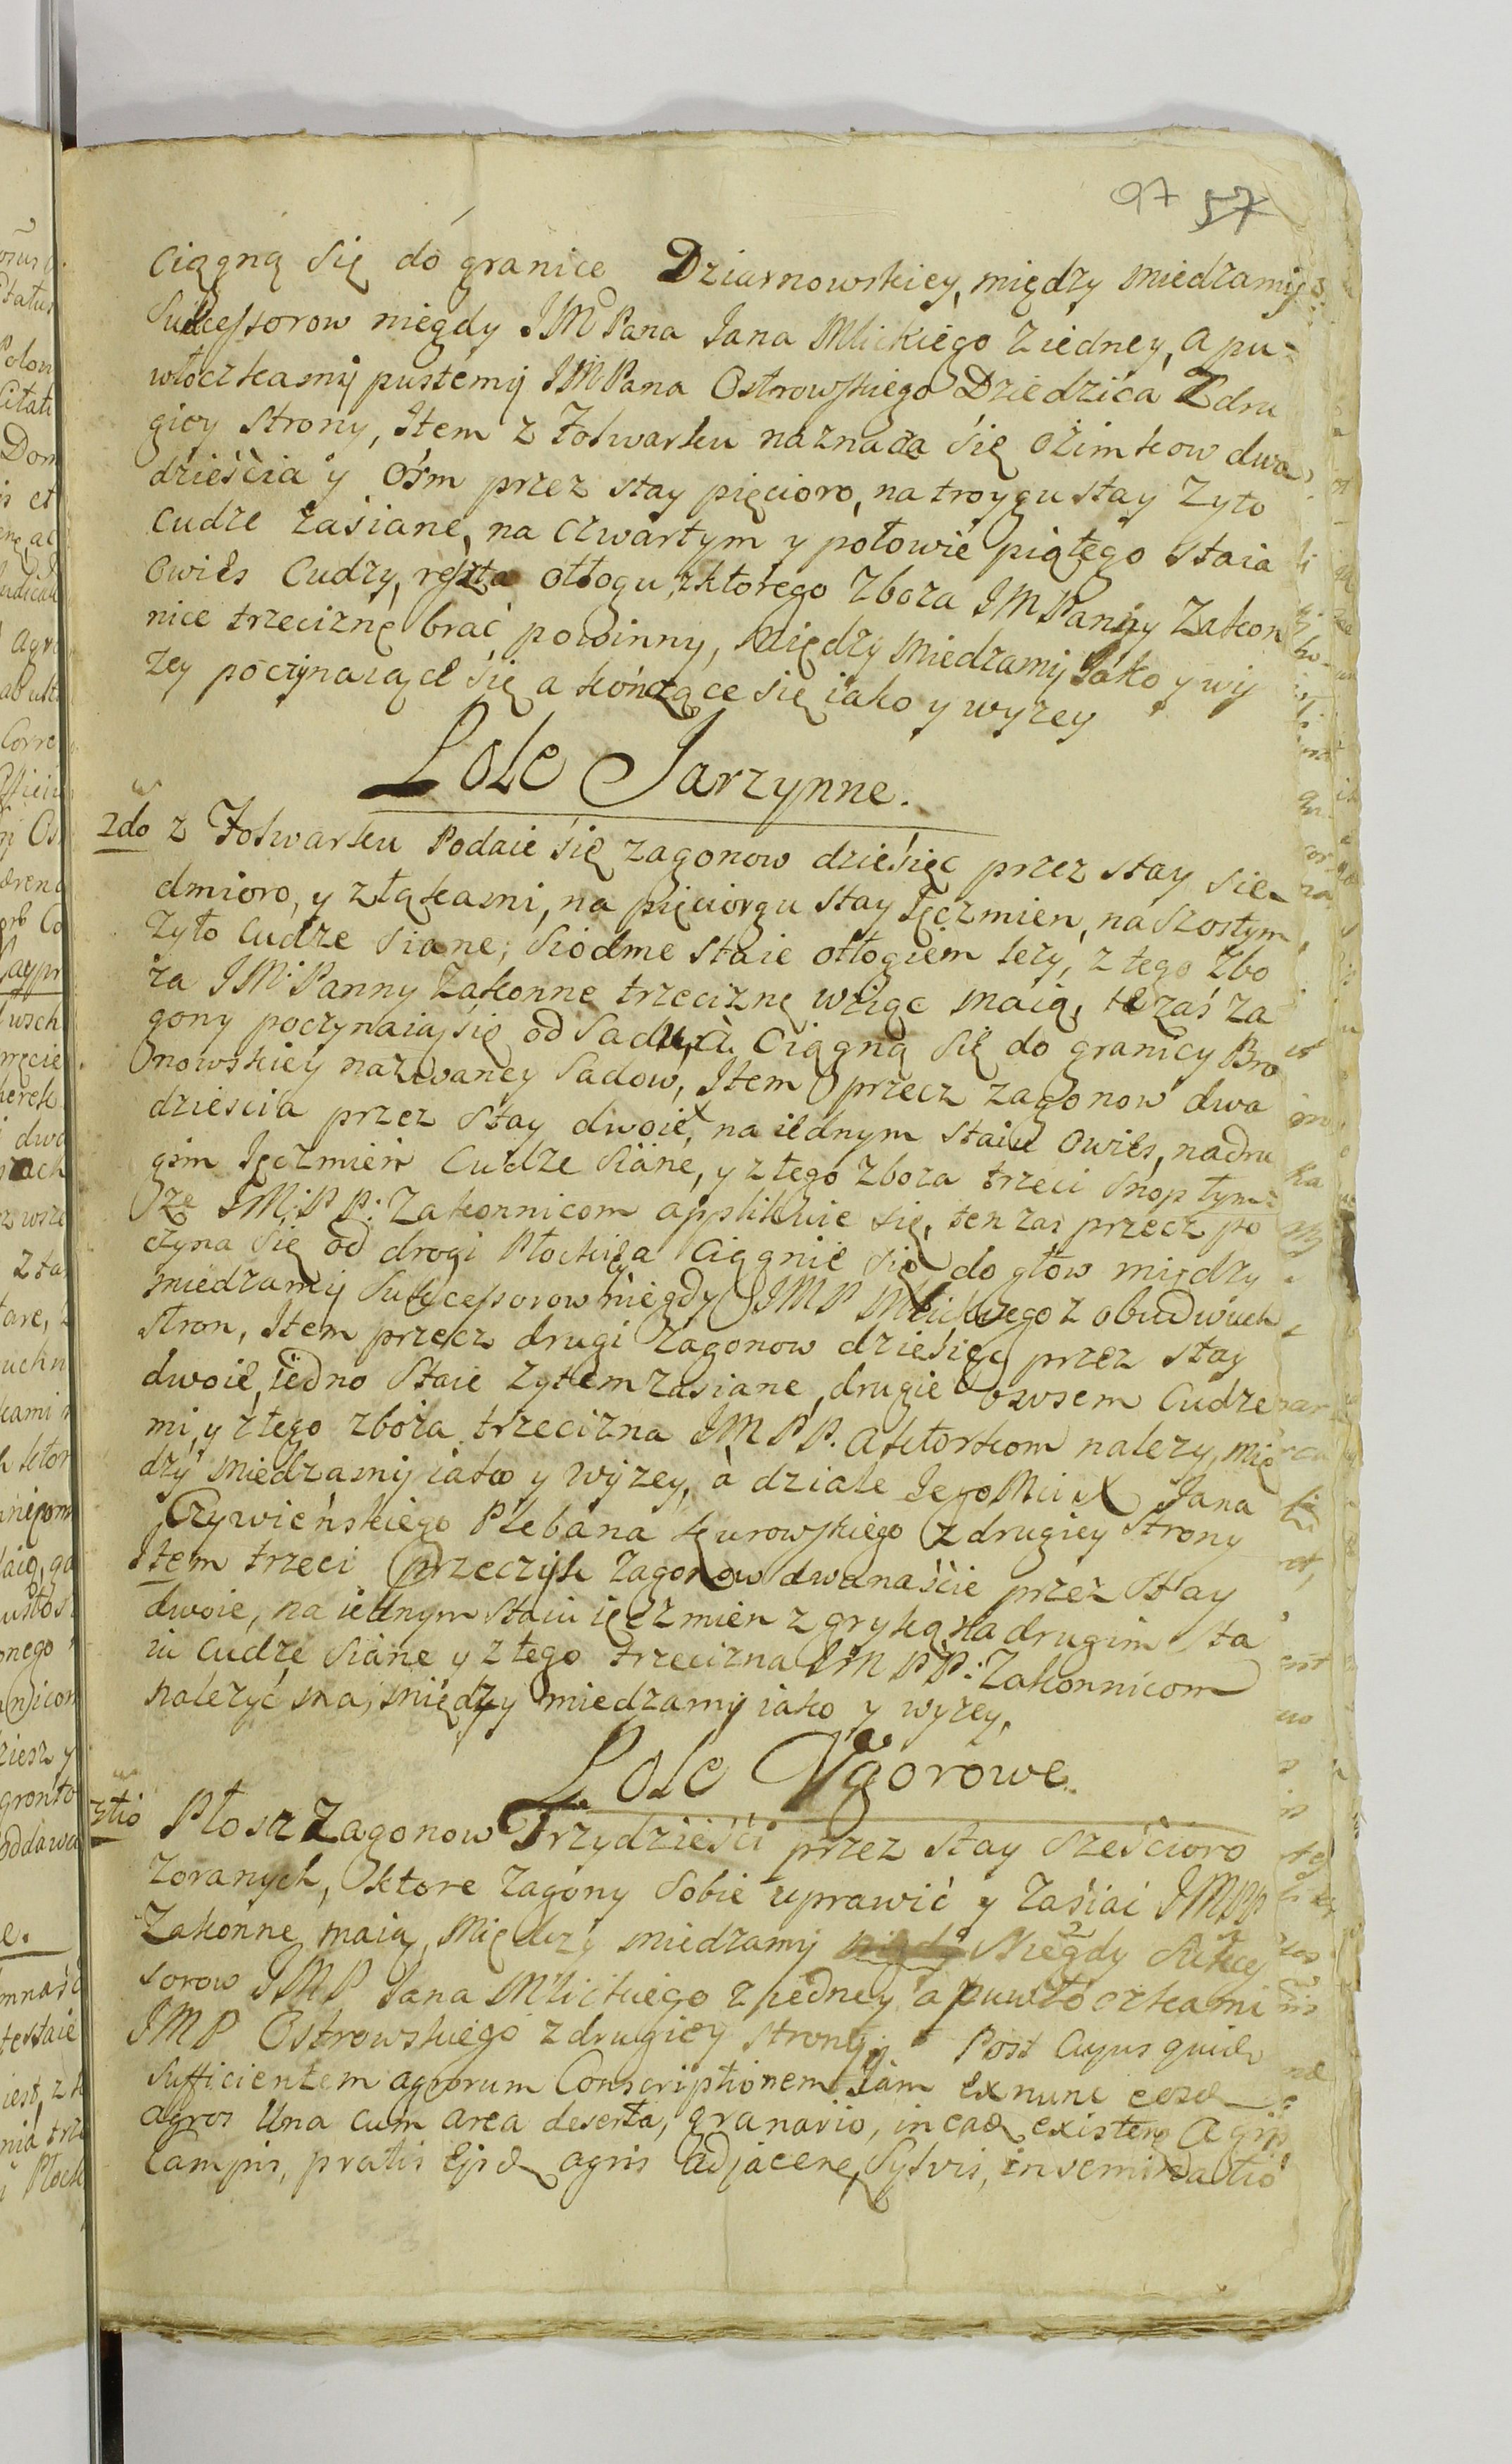 97 57
Ciągną Się do granice Dziarnowskiey, między miedzamij
Sukcessorow niegdy JMPana Jana Mlickiego z iedney, a pu-
włoczkamij pustemij JMPana Ostrowskiego Dziedzica z dru
giey Strony, Item z Folwarku naznacza się ozimkow dwa
dzieścia y Ośm przez stay pięcioro, na troygu stay Zyto
cudze zasiane, na czwartym y połowie piątego staia
Owies Cudzy, reszta odłogu, z ktorego zboza JMPanny Zakon
nice trzeciznę brać powinny, między miedzamij Jako y wij
zey poczynaiące się a kończące się iako y wyzey
Pole Jarzynne.
2do z Folwarku Podaie się zagonow dziesięc przez stay sie-
dmioro, y z łąkami, na pięciorgu stay Jęczmien, na szostym
Zyto Cudze Siane, Siodme staie odłogiem lezy, z tego zbo
za JM: Panny Zakonne trzeciznę wziąc maią, te zaś za
gony poczynaią się od Sadu, a Ciągną się do granicy Bro
nowskiey nazwaney Sadow, Item przecz zagonow dwa
dziescia przez Stay dwoie, na iednym staiu owies, na dru
gim Jęczmień Cudze Siane, y z tego zboza trzeci Snop tym
ze JM:PP: Zakonnicom applikuie się, ten zas przecz po
czyna się od drogi Płockiey a Ciągnie się do głow między
miedzamij Sukcessorow niegdy JMP Mlickiego z obudwuch
stron, Item przecz drugi Zagonow dziesięc przez stay
dwoie, iedno Staie zytem zasiane, drugie owsem Cudze
mi, y z tego zboza trzecizna JMPP. Aktorkom nalezy, mię
dzy miedzamij iako y wyzey, à dziale JegoMci X Jana
Czywieńskiego Plebana Kurowskiego z drugiey Strony
Item trzeci przeczyk Zagonow dwanaście przez Stay
dwoie, na iednym staiu ięczmien z gryką na drugim sta
iu Cudze Siane y z tego trzecizna JMPP: Zakonnicom
nalezyć ma, między miedzamij iako y wyzey.
Pole Vgorowe.
3tio Płosa Zagonow Trzydzieści przez stay sześcioro
zoranych, ktore zagony Sobie uprawić y zasiać JMPP
Zakonne maią, między miedzamij Niegdy Sukces
sorow JMP Jana Mlickiego z iedney a puwłoczkami
JMP Ostrowskiego z drugiey strony. Post Cujus quid
sufficientem agrorum Conscriptionem iam ex nunc eosd
agros Una cum area deserta, granario, in ead existen Agris
Campis, pratis Ejsd agris adjacene, Sylvis, inseminatio